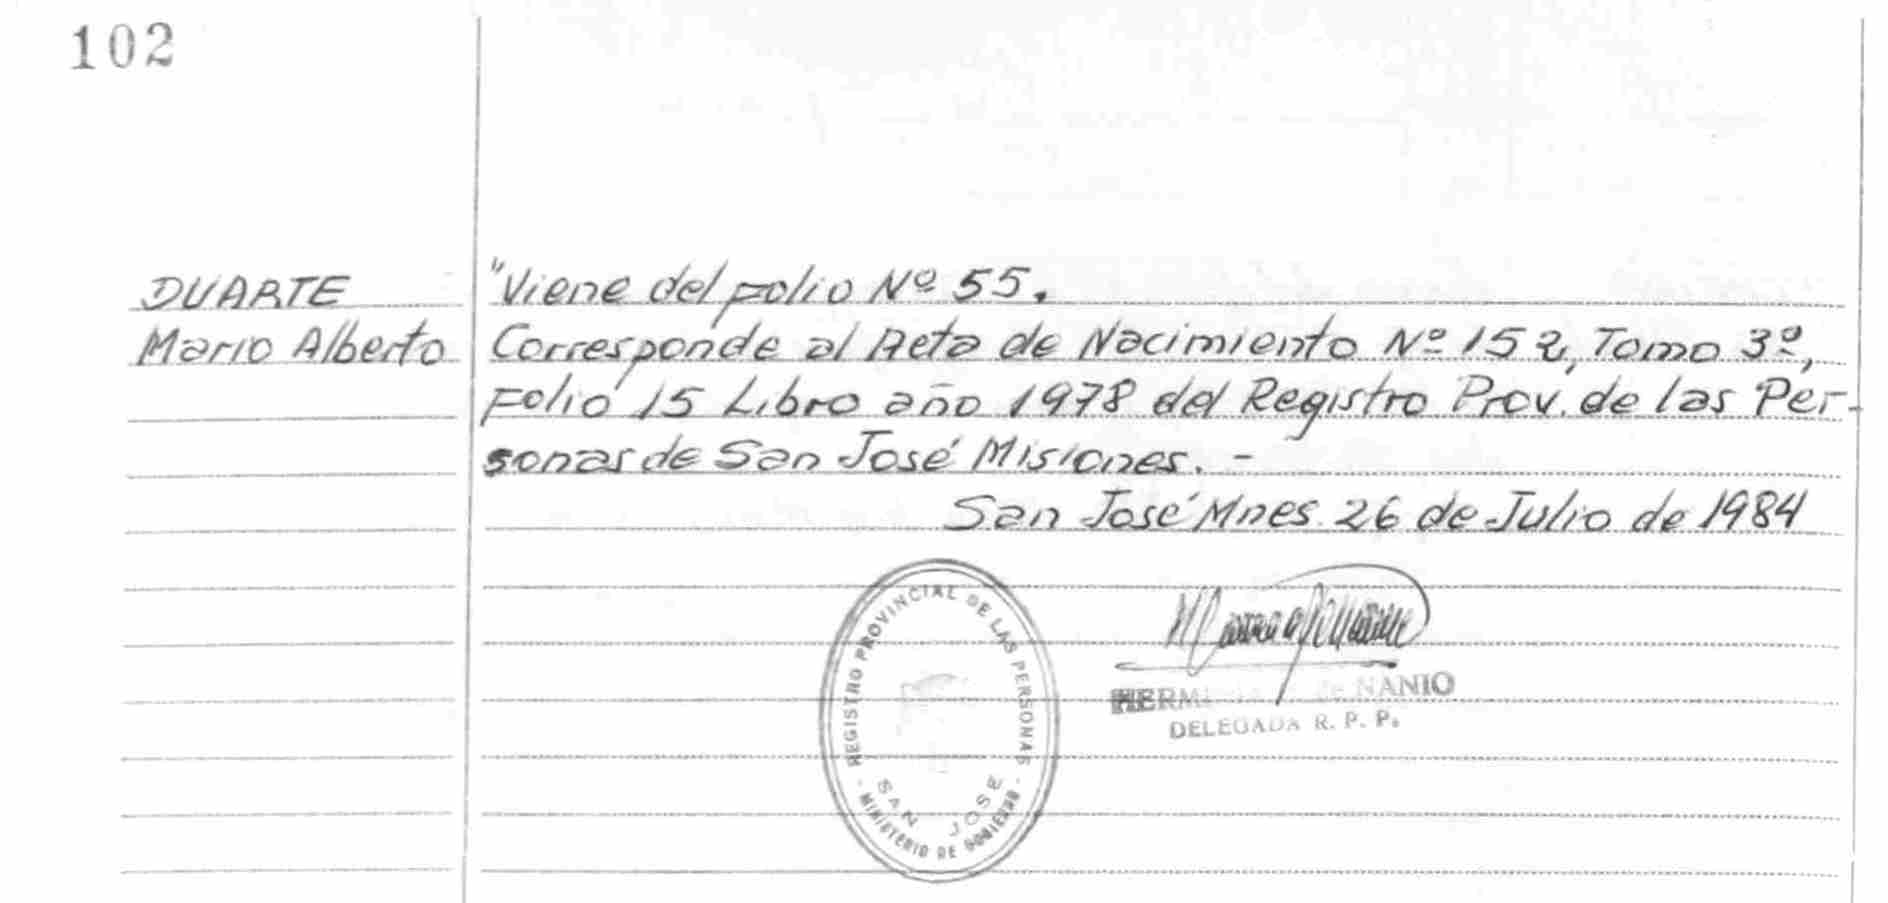 102
DUARTE
Mario Alberto
"Viene del folio Nº 55.
Corresponde al Acta de Nacimiento Nº 152, Tomo 3º,
Folio 15 Libro año 1978 del Registro Prov. de las Per-
sonas de San José Misiones. -
San José Mnes. 26 de Julio de 1984
REGISTRO PROVINCIAL DE LAS PERSONAS
SAN JOSE
- MINISTERIO DE GOBIERNO -
de NANIO
DELEGADA R. P. P.